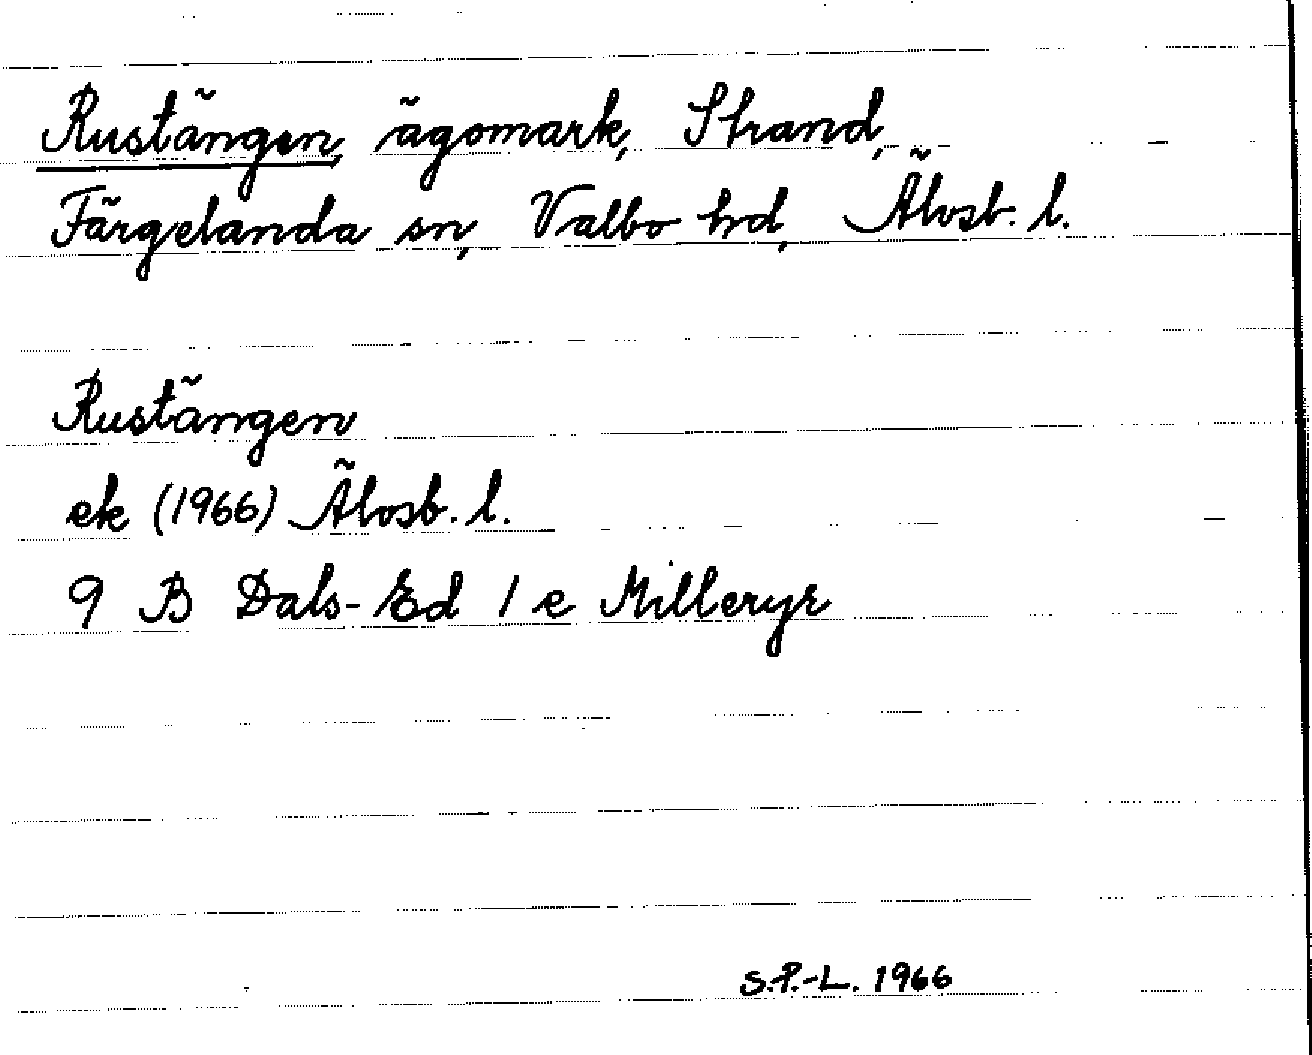 Rustängen, ägomark, Strand,
Färgelanda sn, Valbo hd, Älvsb. l.
Rustängen
ek (1966) Älvsb. l.
9 B Dals-Ed 1 e Milleryr
S.P.-L. 1966